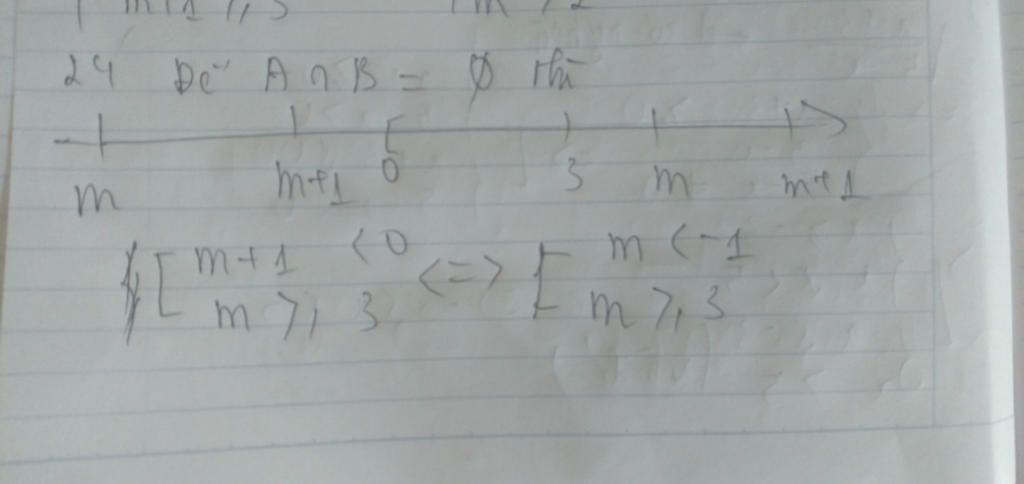 24 Để A ∩ B = ∅ thì
m m+1 0 3 m m+1
[ m+1 < 0 <=> [ m < -1
m ≥ 3 m ≥ 3